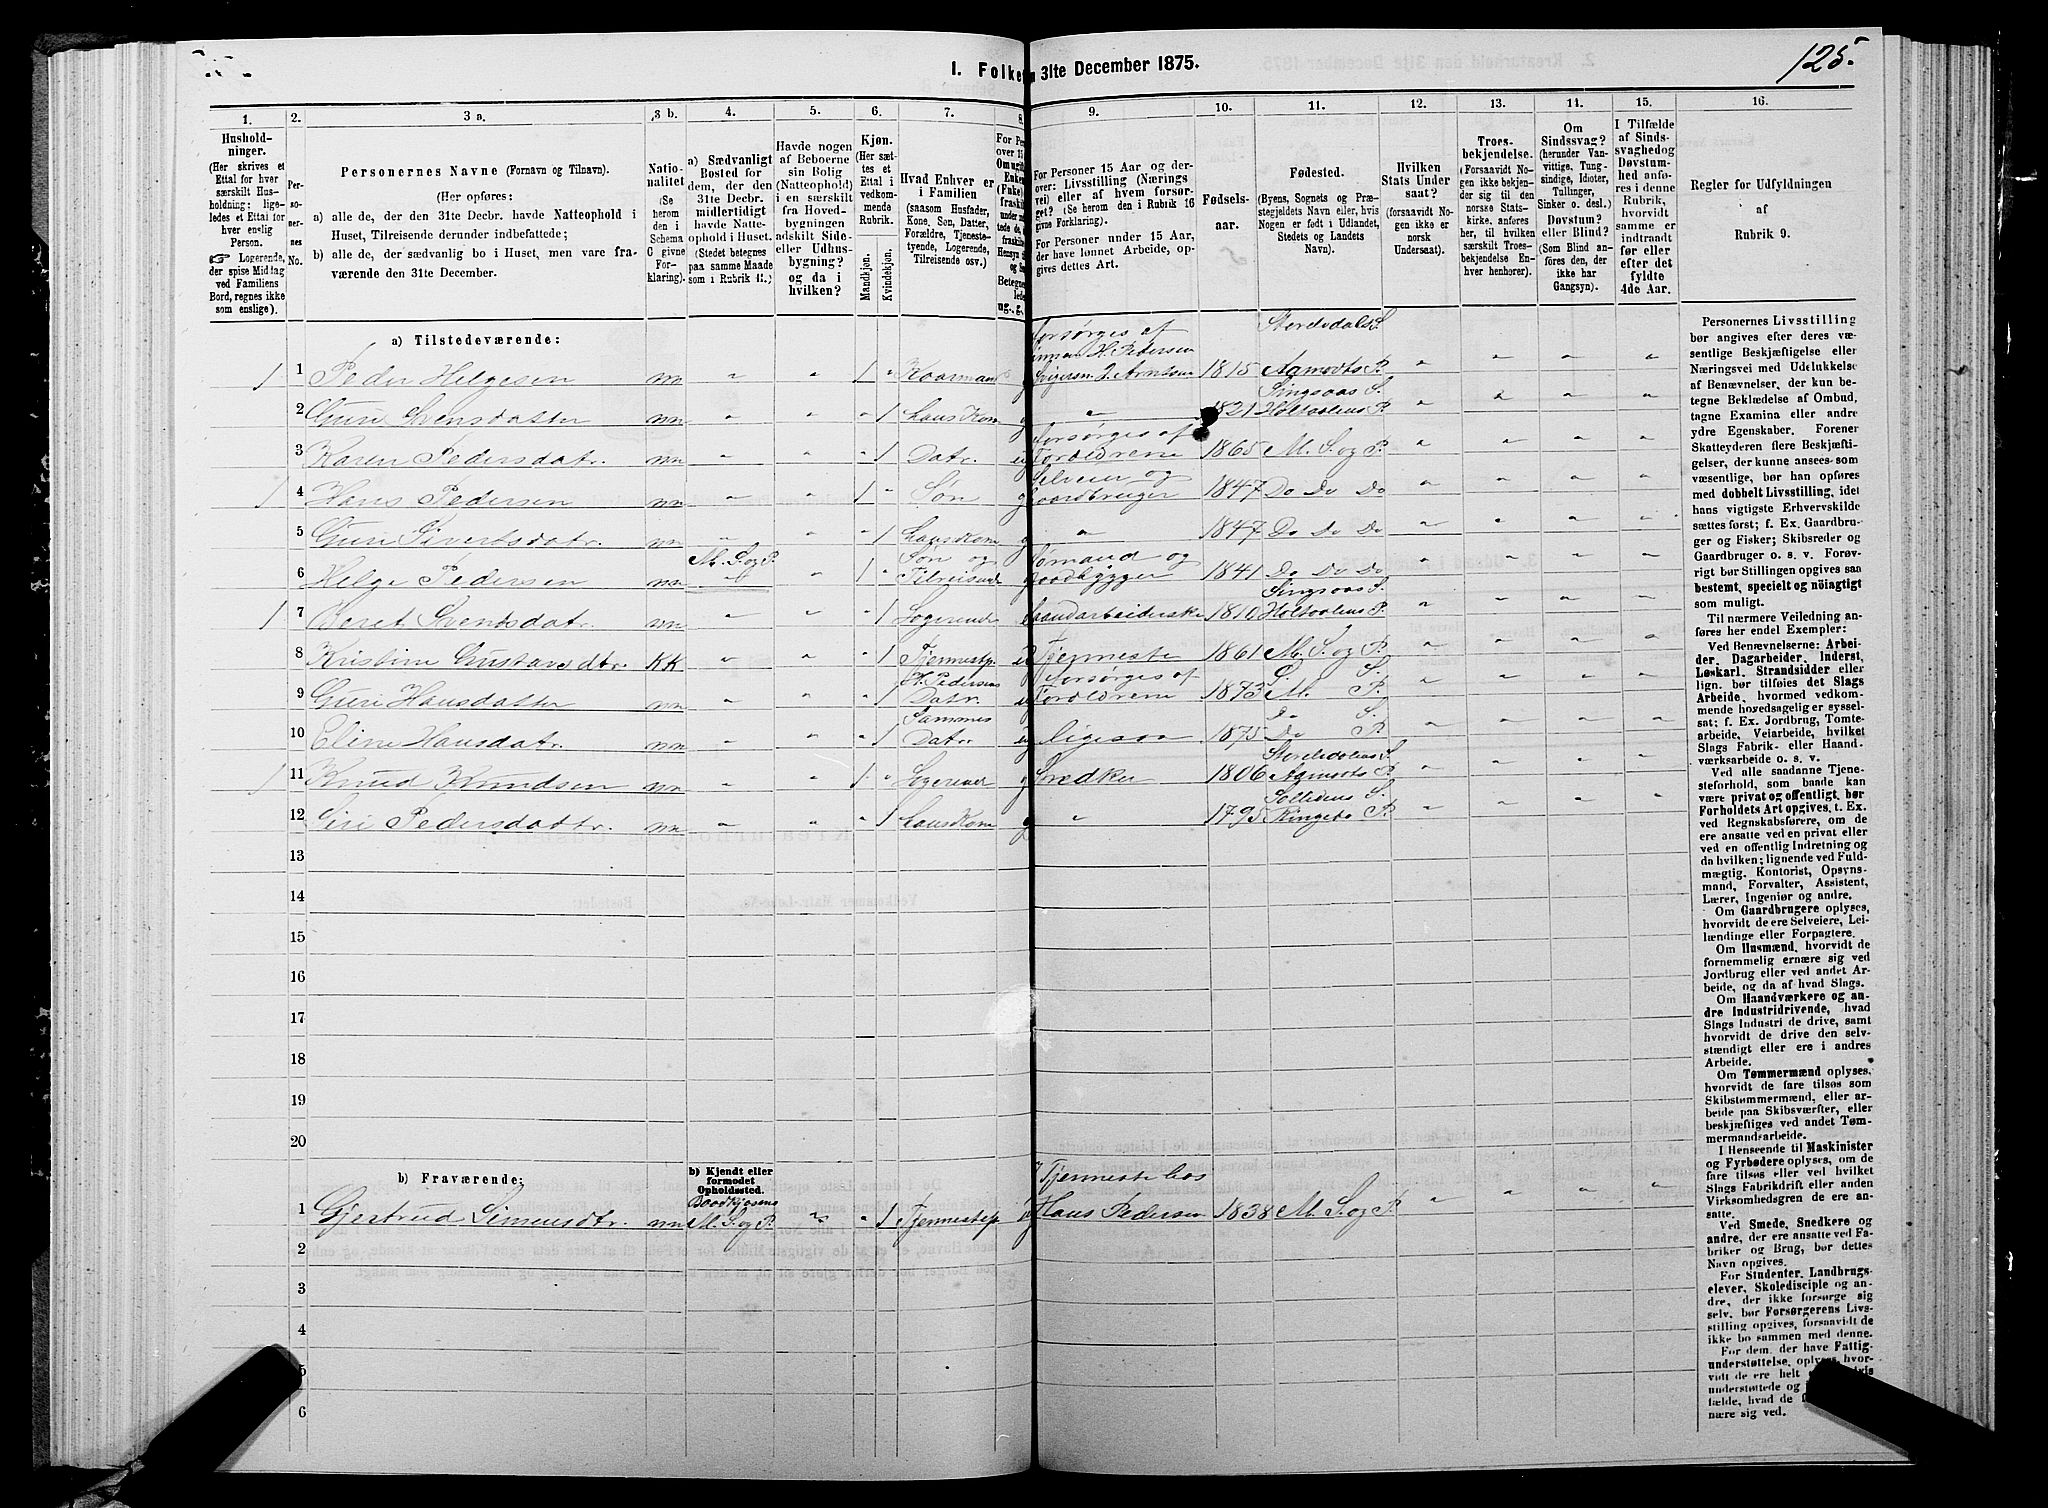 125.
I. Folke n 31te December 1875.
1.
Hushold-
ninger.
(Her skrives et
Ettal for hver
særskilt Hus-
holdning; lige-
ledes et Ettal for
hver enslig
Person.
☞ Logerende,
der spise Middag
ved Familiens
Bord, regnes ikke
som enslige).
2.
Per-
so-
ner-
nes
No.
3 a.
Personernes Navne (Fornavn og Tilnavn).
(Her opføres:
a) alle de, der den 31te Decbr. havde Natteophold i
Huset, Tilreisende derunder indbefattede;
b) alle de, der sædvanlig bo i Huset, men vare fra-
værende den 31te December.
3 b.
Natio-
nalitet
(Se
herom
den i
Schema
G givne
For-
klaring).
4.
a) Sædvanligt
Bosted for
dem, der den
31te Decbr.
midlertidigt
havde Natte-
ophold i Huset.
(Stedet betegnes
paa samme Maade
som i Rubrik 11.)
5.
Havde nogen
af Beboerne
sin Bolig
(Natteophold)
i en særskilt
fra Hoved-
bygningen
adskilt Side-
eller Udhus-
bygning?
og da i
hvilken?
6.
Kjøn.
(Her sæt-
tes et
Ettal i
vedkom-
mende
Rubrik.
Mandkjøn.
Kvindekjøn.
7.
Hvad Enhver er
i Familien
(saasom Husfader,
Kone, Søn, Datter,
Forældre, Tjeneste-
tyende, Logerende,
Tilreisende osv.)
8.
9.
For Personer 15 Aar og der-
over: Livsstilling (Nærings
vei) eller af hvem forsør-
get? (Se herom i Rubrik 16
givne Forklaring).
For Personer under 15 Aar,
der have lønnet Arbeide, op-
gives dettes Art.
10.
Fødsels-
aar.
11.
Fødested.
(Byens, Sognets og Præ-
stegjeldets Navn eller, hvis
Nogen er født i Udlandet,
Stedets og Landets
Navn).
12.
Hvilken
Stats Under
saat?
(forsaavidt No-
gen ikke er
norsk
Undersaat).
13.
Troes-
bekjendelse.
(Forsaavidt No-
gen ikke bekjen-
der sig til den
norske Stats-
kirke, anføres
her, til hvilken
særskilt Troes-
bekjendelse En-
hver henhører).
14.
Om
Sindssvag?
(herunder Van-
vittige, Tung-
sindige, Idioter,
Tullinger,
Sinker o. desl.)
Døvstum?
eller Blind?
(Som Blind an-
føres den, der
ikke har
Gangsyn).
15.
I Tilfælde
af Sinds-
svaghed og
Døvstum-
hed anfø-
res i denne
Rubrik,
hvorvidt
samme er
indtraadt
før eller
efter det
fyldte
4de Aar.
16.
Regler for Udfyldningen
af
Rubrik 9.
a) Tilstedeværende:
1 1 Peder Helgesen nn " " 1 " Kaarmand g Forsørges af Sønnen H. Pedersen Svigersøn J. Arntsen 1815 Storelvdals S. Aamodts P. " " " "
2 Guri Svensdatter nn " " " 1 hans Kone g " 1821 Singsaas S. Holtaalens P. " " " "
3 Karen Pedersdatr. nn " " " 1 Datr. Forsørges af Forældrene 1865 M. S. og P. " " " "
1 4 Hans Pedersen nn " " 1 " Søn g Selveier og Gaardbruger 1847 Do Do Do " " " "
5 Guri Sivertsdatr. nn " " " 1 hans Kone g " 1847 Do Do Do " " " "
6 Helge Pedersen nn M. S. og P. " 1 " Søn og Tilreisende 1841 Do Do Do " " " "
1 7 Beret Svendsdatr. nn " " " 1 Logerende Haandarbeiderske 1810 Singsaas S. Holtaalens P. " " " "
8 Kristine Gustavsdtr. KK " " " 1 Tjenestep. Tjenneste 1861 M. S. og P. " " " "
9 Guri Hansdatter nn " " " 1 H. Pedersens Datr. Forsørges af Forældrene 1873 S. M. S. P. " " " "
10 Eline Hansdatr. nn " " " 1 Sammes Datr. ligesaa 1875 Do S. Do P. " " " "
1 11 Knud Knudsen nn " " 1 " Logerende g Snedker 1806 Storelvdalens S. Aamodts P. " " " "
12 Siri Pedersdatr. nn " " " 1 hans Kone g " 1795 Sollidens S. Ringebo P. " " " "
13
14
15
16
17
18
19
20
b) Fraværende:
b) Kjendt eller
formodet
Opholdssted.
1 Gjertrud Simensdtr. nn M. S. og P. " " 1 Tjennestep. Tjenneste hos Hans Pedersen 1838 M. S. og P. " " " "
2
3
4
5
6
Personernes Livsstilling
bør angives efter deres væ-
sentlige Beskjæftigelse eller
Næringsvei med Udelukkelse
af Benævnelser, der kun be-
tegne Beklædelse af Ombud,
tagne Examina eller andre
ydre Egenskaber. Forener
Skatteyderen flere Beskjæfti-
gelser, der kunne ansees som
væsentlige, bør han opføres
med dobbelt Livsstilling, idet
hans vigtigste Erhvervskilde
sættes først; f. Ex. Gaardbru-
ger og Fisker; Skibsreder og
Gaardbruger o. s. v. Forøv-
rigt bør Stillingen opgives saa
bestemt, specielt og nöiagtigt
som muligt.
Til nærmere Veiledning an-
føres her endel Exempler:
Ved Benævnelserne: Arbei-
der, Dagarbeider, Inderst,
Løskarl, Strandsidder eller
lign. bør tilføies det Slags
Arbeide, hvormed vedkom-
mende hovedsagelig er syssel-
sat; f. Ex. Jordbrug, Tomte-
arbeide, Veiarbeide, hvilket
Slags Fabrik- eller Haand-
værksarbeide o. s. v.
Ved alle saadanne Tjene-
steforhold, som baade kan
være privat og offentligt, bør
Forholdets Art opgives, t. Ex.
ved Regnskabsførere, om de
ere ansatte ved en privat eller
ved en offentlig Indretning og
da hvilken; lignende ved Fuld-
mægtig, Kontorist, Opsyns-
mand, Forvalter, Assistent,
Lærer, Ingeniør og andre.
Om Gaardbrugere oplyses,
hvorvidt de ere Selveiere, Lei-
lændinge eller Forpagtere.
Om Husmænd, hvorvidt de
fornemmelig ernære sig ved
Jordbrug eller ved andet Ar-
beide, og da af hvad Slags.
Om Haandværkere og an-
dre Industridrivende, hvad
Slags Industri de drive, samt
hvorvidt de drive den selv-
stændigt eller ere i andres
Arbeide.
Om Tømmermænd oplyses,
hvorvidt de fare tilsøs som
Skibstømmermænd, eller ar-
beide paa Skibsværfter, eller
beskjæftiges ved andet Tøm-
mermandsarbeide.
I Henseende til Maskinister
og Fyrbødere oplyses, om de
fare tilsøs eller ved hvilket
Slags Fabrikdrift eller anden
Virksomhedsgren de ere an-
satte.
Ved Smede, Snedkere og
andre, der ere ansatte ved Fa-
briker og Brug, bør dettes
Navn opgives.
For Studenter, Landbrugs-
elever, Skoledisciple og an-
dre, der ikke forsørge sig
selv, bør Forsørgerens Livs-
stilling opgives, forsaavidt de
ikke bo sammen med denne.
For dem, der have Fattig-
understøttelse, oplyses, hvor-
vidt de ere helt
understøttede og
fælde, hvad de
nære sig ved.